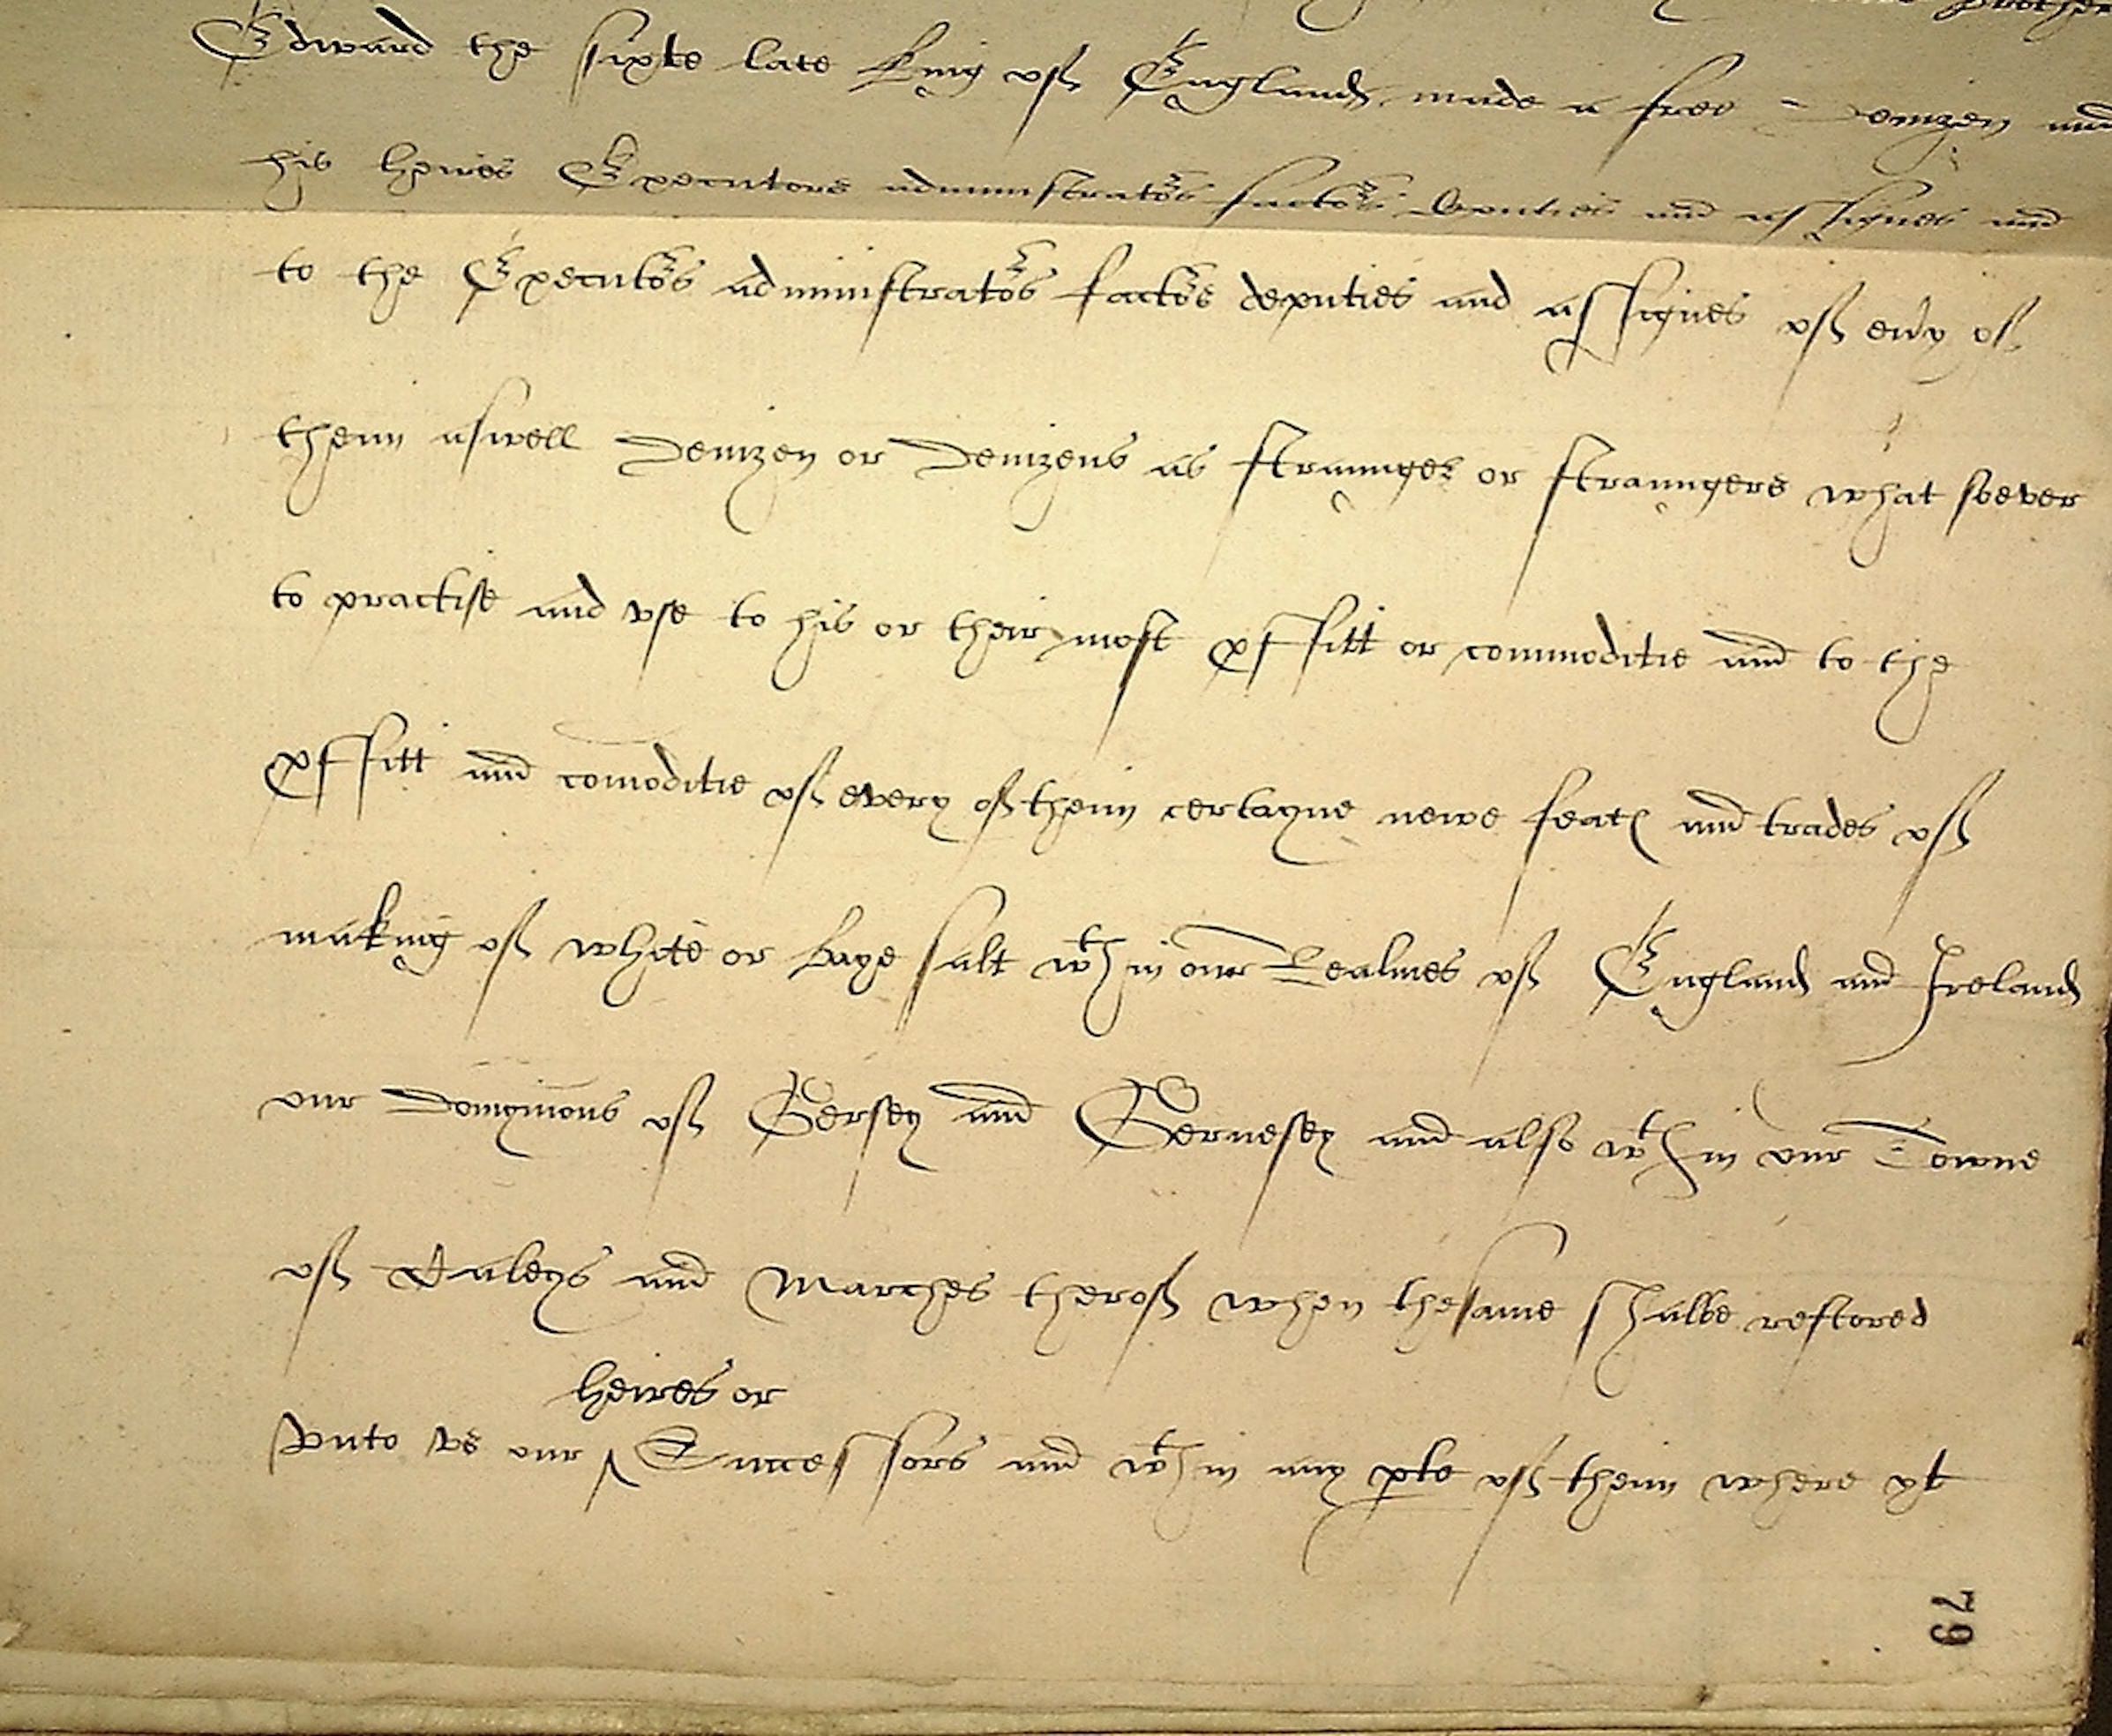 Brother
Edward the sixte late King off England made a free Denizen and
his heires Executors administrators factors deputies and assignes and
to the Executors administrators factors deputies and assignes off eu'y off
theim aswell Denizen or Denizens as straunger or straungers what soever
to practise and vse to his or their most proffitt or commoditie and to the
proffitt and comoditie off every off theim certayne newe feates and trades off
making off white or baye salt wth in our Realmes off England and Ireland
our Domynions off Gersey and Gernesey and also wth in our Towne
off Caleys and Marches theroff when thesame shalbe restored
heires or
vnto vs our ^ Successors and wth in any pte off theim where yt
79